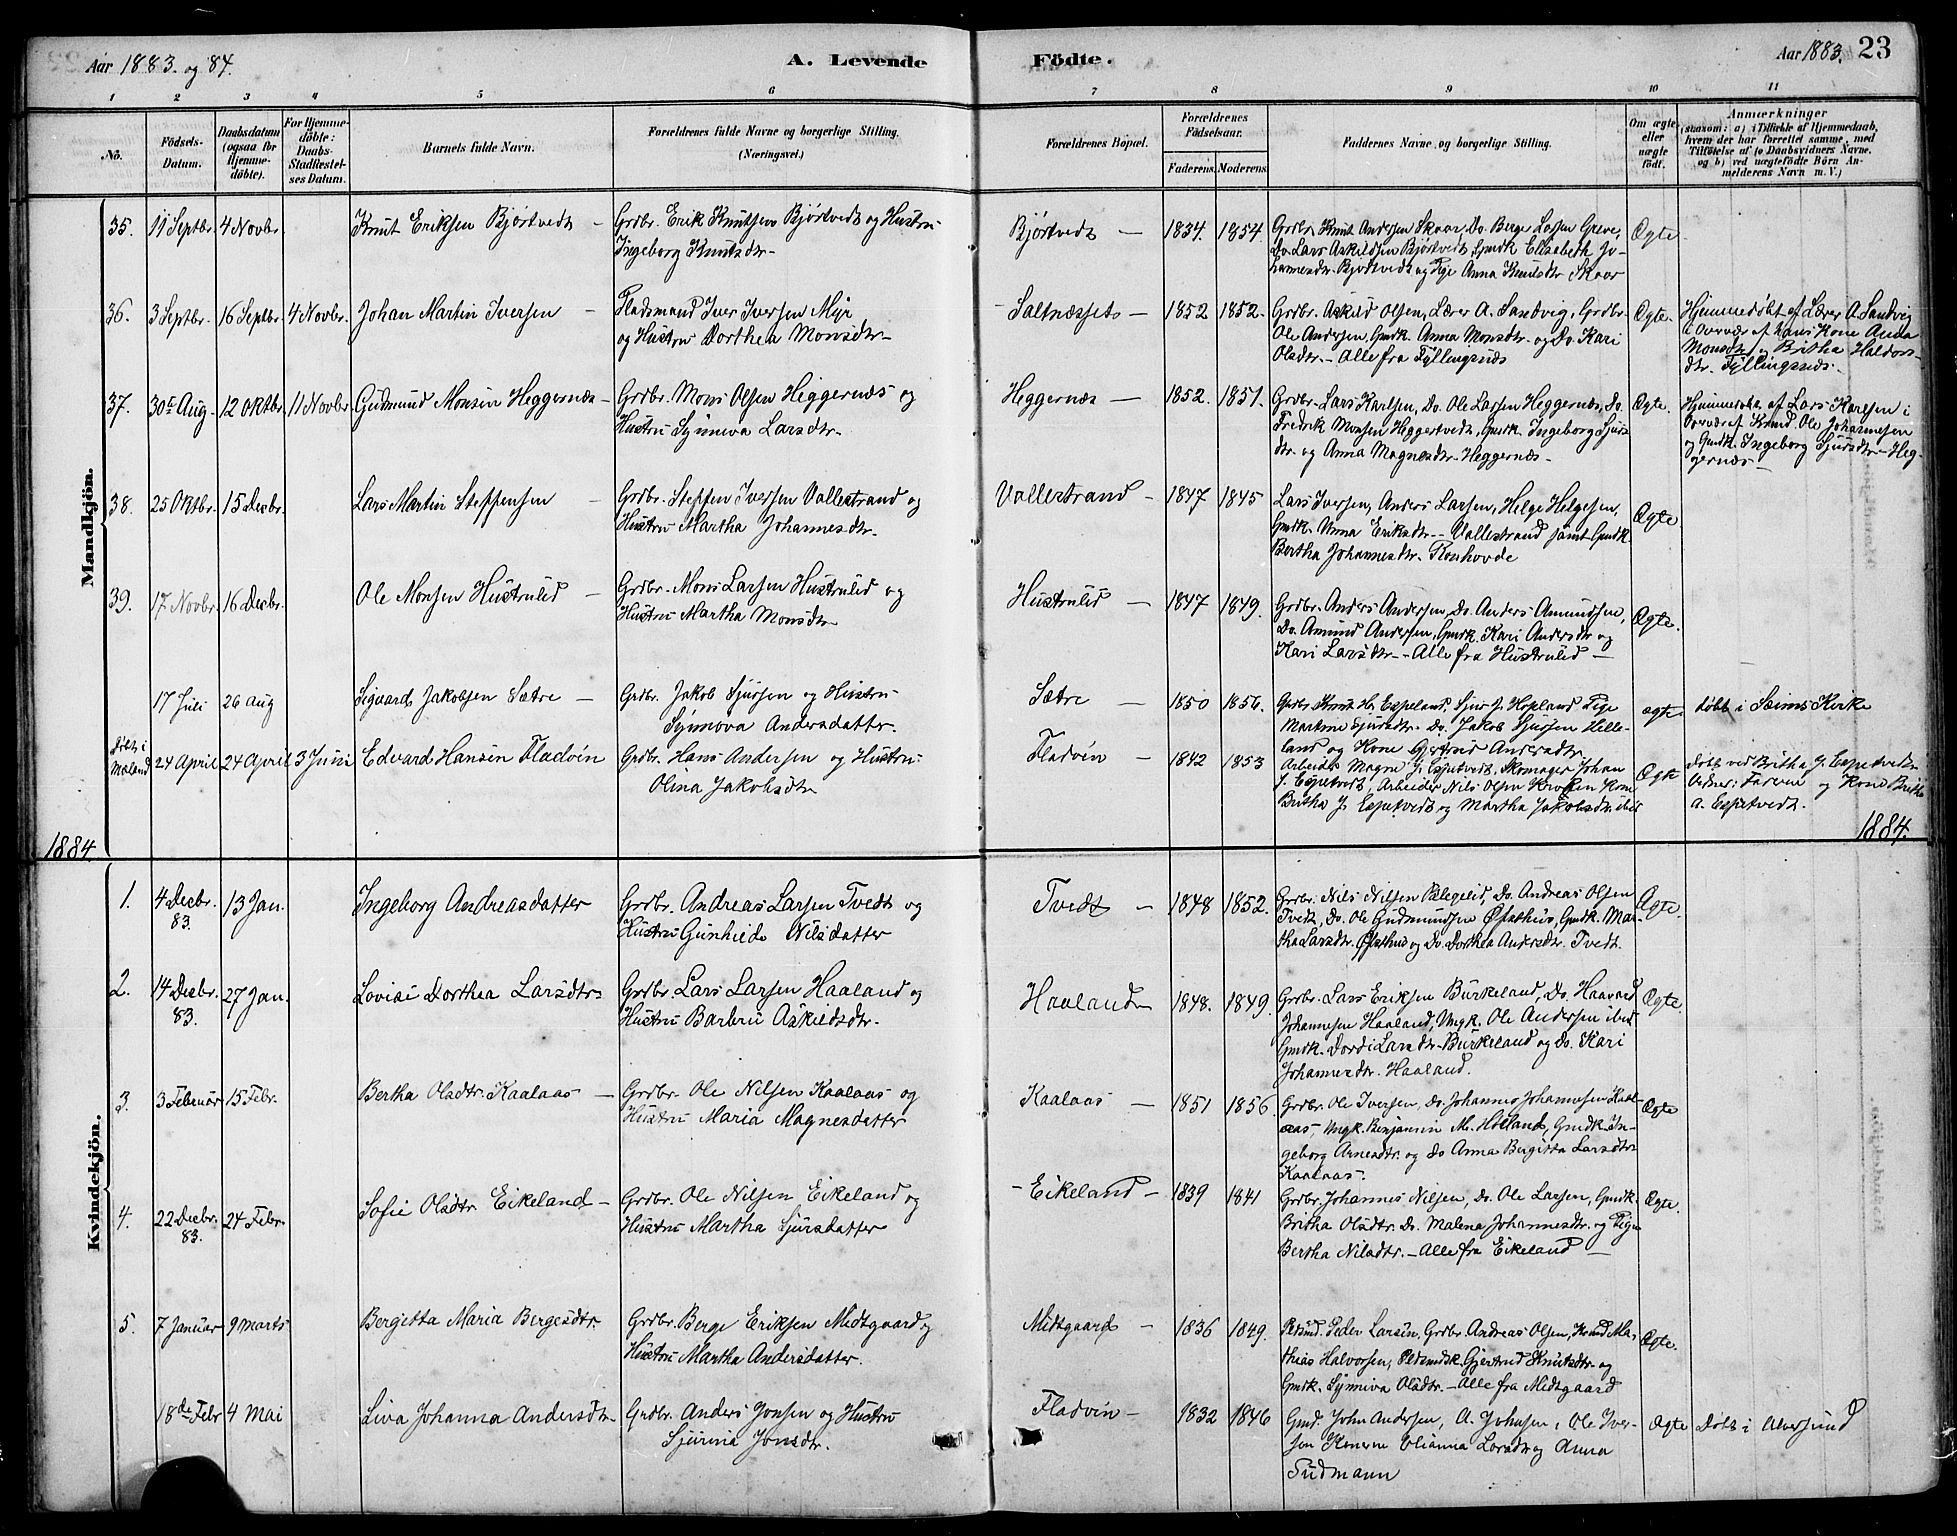 Aar 1883. og 84.
A. Levende Födte.
Aar 1883. 23
1 2 3 4 5 6 7 8 9 10 11
No.
Födsels-Datum.
Daabsdatum (ogsaa for Hjemme-döbte).
For Hjemme-döbte: Daabs-Stadfæstel-ses Datum.
Barnets fulde Navn.
Forældrenes fulde Navne og borgerlige Stilling.
(Næringsvei.)
Forældrenes Böpæl.
Forældrenes Födselsaar.
Faderens. Moderens.
Faddernes Navne og borgerlige Stilling.
Om ægte eller uægte födt.
Anmærkninger
(saasom: a) i Tilfælde af Hjemmedaab,
hvem der har forrettet samme, med
Tilföielse af to Daabsvidners Navne,
og b) ved uægtefödte Börn An-
melderens Navn m. V.)
Mandkjön.
35. 11 Septbr. 4 Novbr. Knut Eriksen Bjørtvedt – Grdbr. Erik Knutsen Bjørtvedt og Hustru
Ingeborg Knutsdtr.
Bjørtvedt — 1834. 1854. Grdbr. Knut Andersen Skaar, Do. Berge Larsen Greve,
Do. Lars Askildsen Bjørtvedt, Gmdk. Elisabeth Jo-
hannesdtr. Bjørtvedt og Pige Anna Knutsdtr. Skaar
Ægte.
36. 3 Septbr. 16 Septbr. 4 Novbr. Johan Martin Iversen – Pladsmand Iver Iversen Myr
og Hustru Dorthea Monsdtr.
Saltnæsset – 1852 1852. Grdbr. Askild Olsen, Lærer A. Sandvig, Grdbr.
Ole Andersen, Gmdk. Anna Monsdtr. og Do. Kari
Olsdtr. – Alle fra Fyllingsnæs
Ægte. Hjemmedøbt af Lærer A. Sandvig
i Overvær af hans Kone Anna
Monsdtr. og Britha Haldors-
dtr. Fyllingsnæs.
37. 30te Aug. 12 Oktbr. 11 Novbr. Gudmund Monsen Heggernæs – Grdbr. Mons Olsen Heggernæs og
Hustru Synneva Larsdtr.
Heggernæs — 1852. 1851. Grdbr. Lars Karlsen, Do. Ole Larsen Heggernæs, Do.
Fredrik Monsen Heggertvedt, Gmdk. Ingeborg Sjurs-
dtr. og Anna Magnesdtr. Heggernæs –
Ægte. Hjemmedøbt af Lars Karlsen i
Overvær af Ole Johannesen
og Gmdk. Ingeborg Sjursdtr. Heg-
gernæs –
38. 25 Oktbr. 15 Decbr. Lars Martin Steffensen – Grdbr. Steffen Iversen Vallestrand og
Hustru Martha Johannesdtr.
Vallestrand – 1847 1845 Lars Iversen, Anders Larsen, Helge Helgesen,
Gmdk. Anna Eriksdtr. – Vallestrand samt Gmdk.
Bertha Johannesdtr.
Ægte.
39. 17 Novbr. 16 Decbr. Ole Monsen Hustrulid – Grdbr. Mons Larsen Hustrulid og
Hustru Martha Monsdtr.
Hustrulid — 1847 1849. Grdbr. Anders Andersen, Do. Anders Amundsen,
Do. Amund Andersen, Gmdk. Kari Andersdtr. og
Kari Larsdtr. – Alle fra Hustrulid –
Ægte.
17 Juli 26 Aug Sigvard Jakobsen Sætre – Grdbr. Jakob Sjursen og Hustru
Synnova Andersdatter.
Sætre — 1850 1856. Grdbr. Knut H. Espeland, Sjur J. Hopland Pige
Martine Sjursdtr. Do. Jakob Sjursen Helle-
land og Kone Gjertrud Andersdtr.
ægte. døbt i Seims Kirke
døbt i
24 April 24 April 3 Juni Edvard Hansen Fladvin Grdbr. Hans Andersen og Hustru
Olina Jakobsdtr
Fladvin – 1842 1853 Arbeider Magne J. Espetvedt, Skomager Johan
J. Espetvedt, Arbeider Nils Olsen Kone
Britha J. Espetvedt og Martha Jakobsdtr. ibid
Ægte døbt ved Britha J. Espetvedt
Vidner: Faderen og Kone Britha
A. Espetvedt.
1884. 1884.
Kvindekjön.
1. 4 Decbr. 83. 13 Jan. Ingeborg Andreasdatter Grdbr. Andreas Larsen Tvedt og
Hustru Gunhilde Nilsdatter
Tvedt – 1848 1852. Grdbr. Nils Nilsen Do. Andreas Olsen
Tvedt, Do. Ole Gudmundsen Gmdk. Mar-
tha Larsdtr. og Do. Dorthea Andersdtr. Tvedt.
Ægte.
2. 14 Decbr. 83. 27 Jan. Lovise Dorthea Larsdtr. Grdbr. Lars Larsen Haaland og
Hustru Barbru Askildsdtr.
Haaland – 1848. 1849. Grdbr. Lars Eriksen Burkeland, Do. Haavard
Johannesen Haaland, Ungk. Ole Andersen ibid
Gmdk. Dordi Larsdtr. Burkeland og Do. Kari
Johannesdtr. Haaland.
Ægte.
3. 3 Februar 15 Febr. Bertha Olsdtr. Kaalaas – Grdbr. Ole Nilsen Kaalaas og
Hustru Maria Magnesdatter
Kaalaas — 1851 1856. Grdbr. Ole Iversen, Do. Johannes Johannesen Kaal-
aas, Ungk. Benjamin M. Gmdk. In-
geborg Arnesdtr. og Do Anna Birgitta Larsdtr
Kaalaas.
Ægte
4. 22 Decbr. 83. 24 Febr. Sofie Olsdtr. Eikeland – Grdbr. Ole Nilsen Eikeland og
Hustru Martha Sjursdatter
– Eikeland – 1839 1841 Grdbr. Johannes Nilsen, Do. Ole Larsen, Gmdk.
Britha Olsdtr. Do. Malena Johannesdtr. og Pige
Bertha Nilsdtr. – Alle fra Eikeland –
Ægte.
5. 7 Januar 9 Marts Bergitta Maria Bergesdtr. Grdbr. Berge Eriksen Midtgaard og
Hustru Martha Andersdatter.
Midtgaard – 1836 1849. Peder Larsen, Grdbr. Andreas Olsen, Ma-
thias Halvorsen, Gjertrud Knutsdtr. og
Gmdk. Synneva Olsdtr. – Alle fra Midtgaard
Ægte.
18de Febr 4 Mai Liva Johanna Andersdtr. Grdbr. Anders Jonsen og Hustru
Sjurina Jonsdtr.
Fladvin – 1832 1846 Gmd. John Andersen, A. Johnsen, Ole Iver-
sen Larsdtr og Anna
Tudmann
Ægte Døbt i Alversund